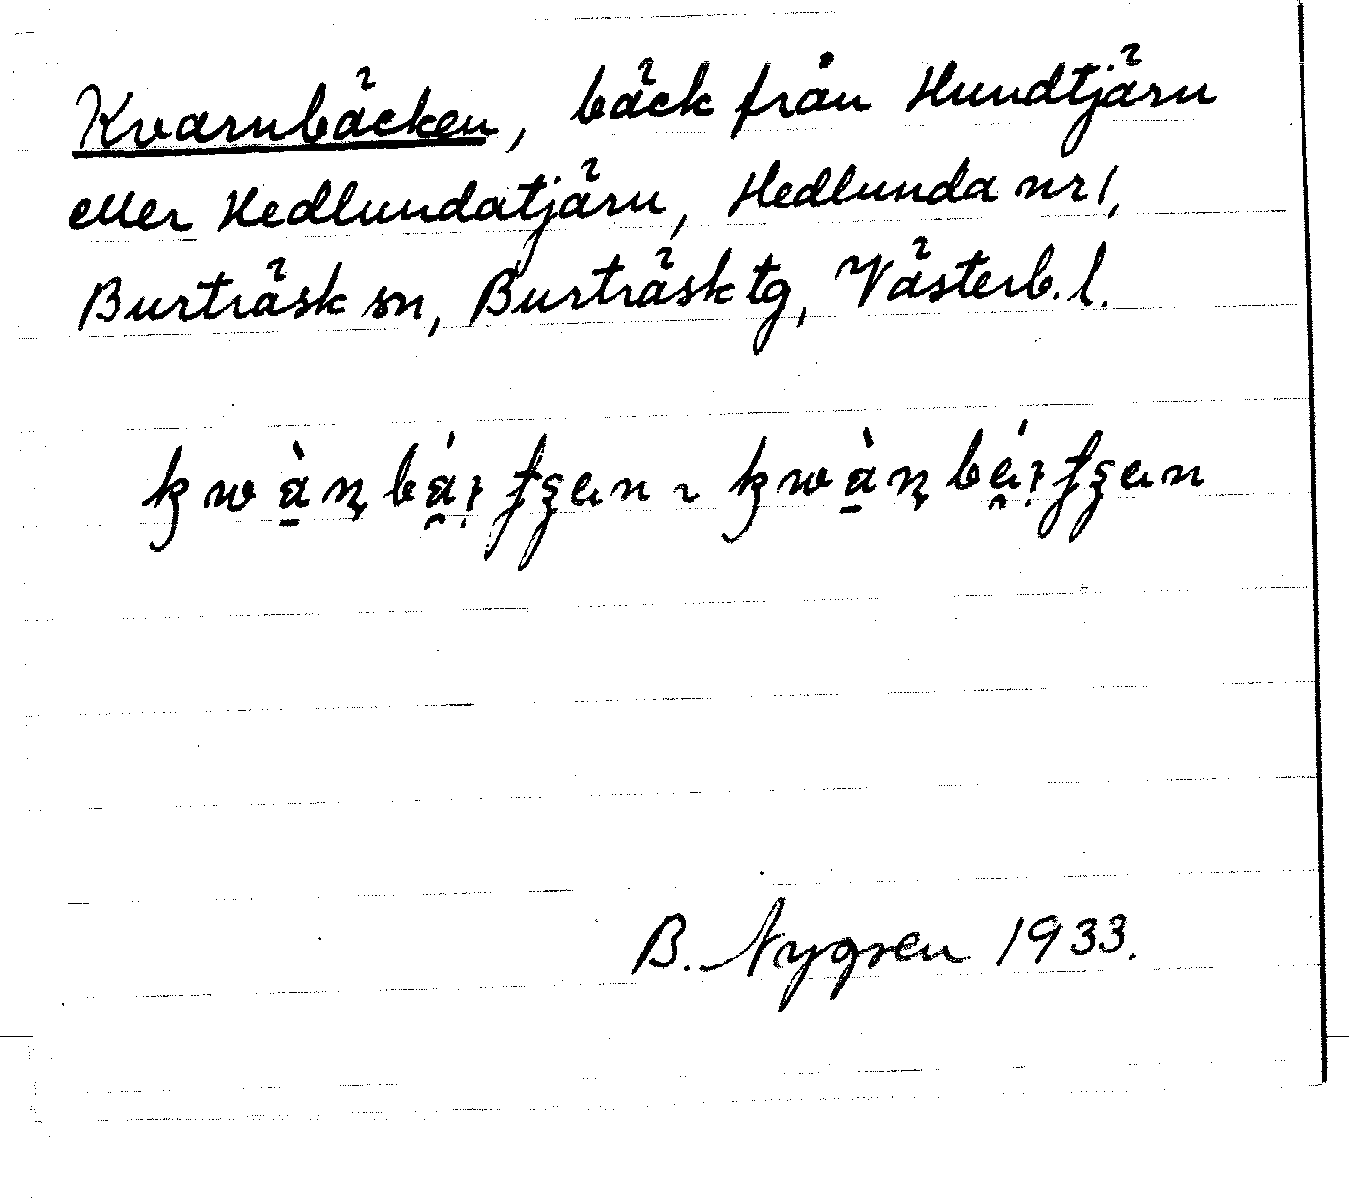 Kvarnbäcken, bäck från Hundtjärn
eller Hedlundatjärn, Hedlunda nr 1,
Burträsk sn, Burträsk tg, Västerb. l.
B. Nygren 1933.